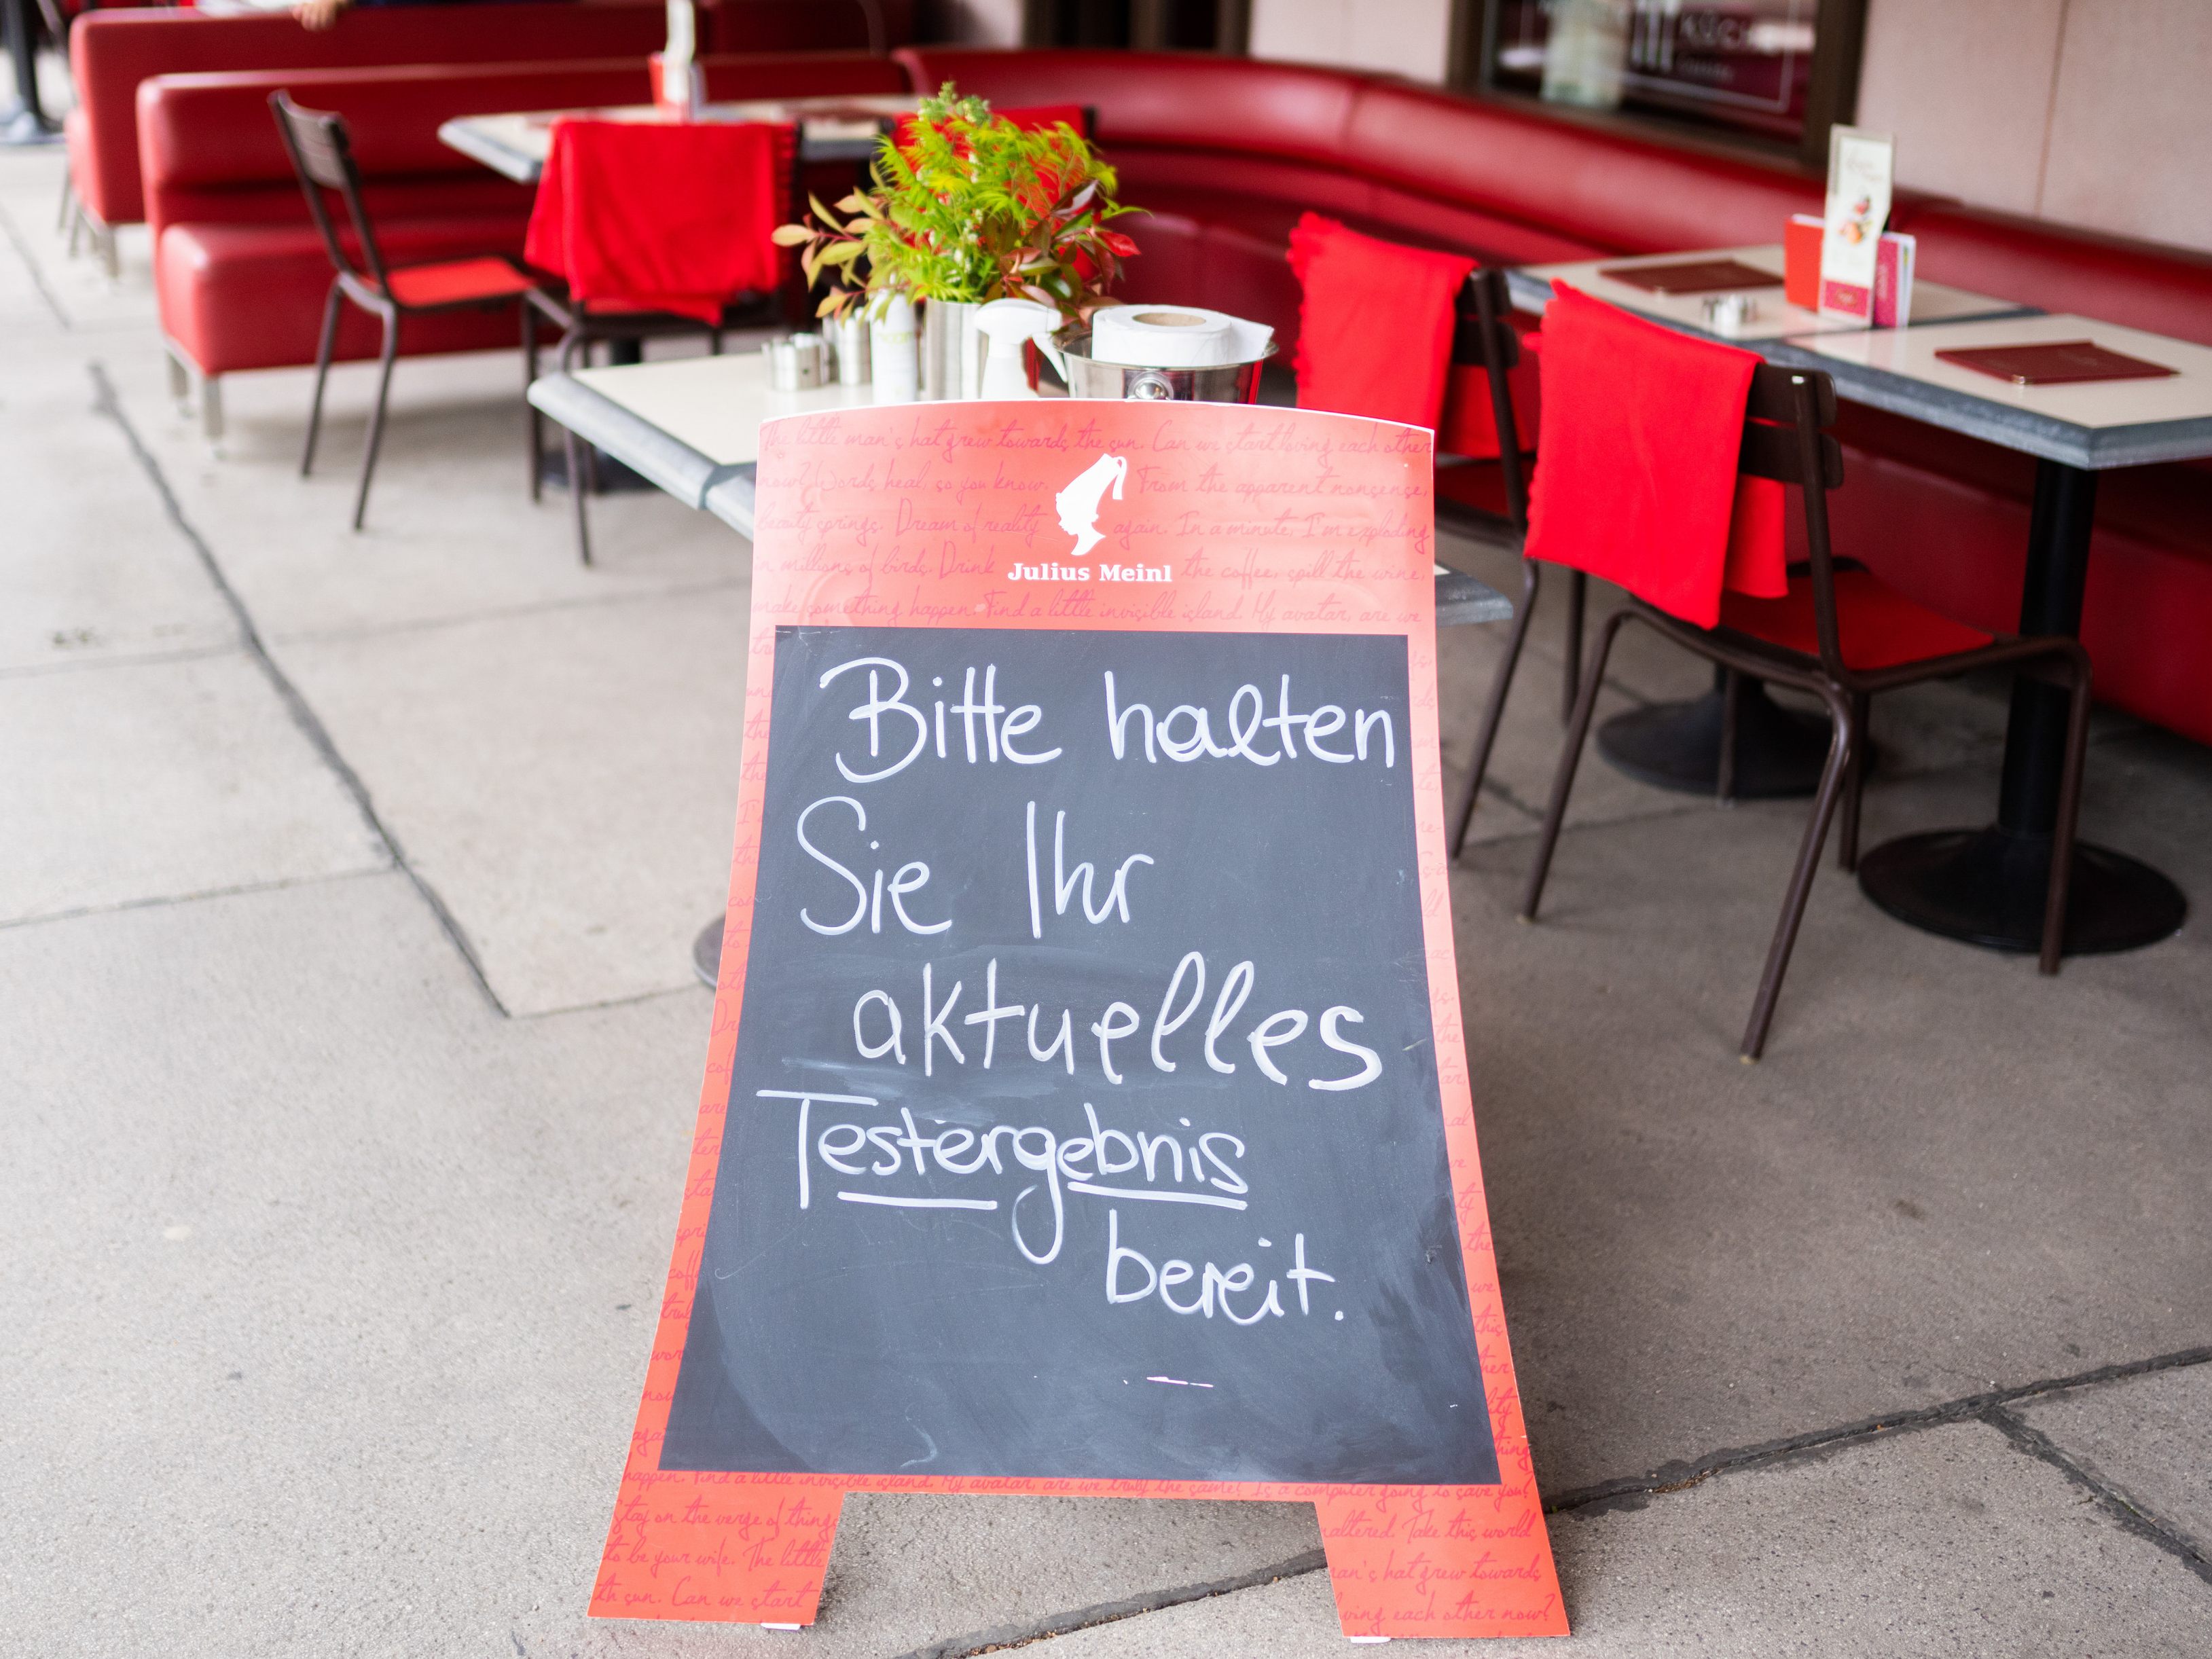 The little man's hat grew towards the sun. Can we start loving each other
now? Words heal, so you know. From the apparent nonsense,
beauty springs. Dream of reality again. In a minute, I'm exploding
in millions of birds. Drink the coffee, spill the wine,
Julius Meinl
make something happen. Find a little invisible island. My avatar, are we
Bitte halten
Sie Ihr
aktuelles
Testergebnis
bereit.
happen. Find a little invisible island. My avatar, are we truly the same? Is a computer going to save you?
stay on the verge of things
to be your wife. The little
th sun. Can we start
altered. Take this world
man's hat grew towards
loving each other now?